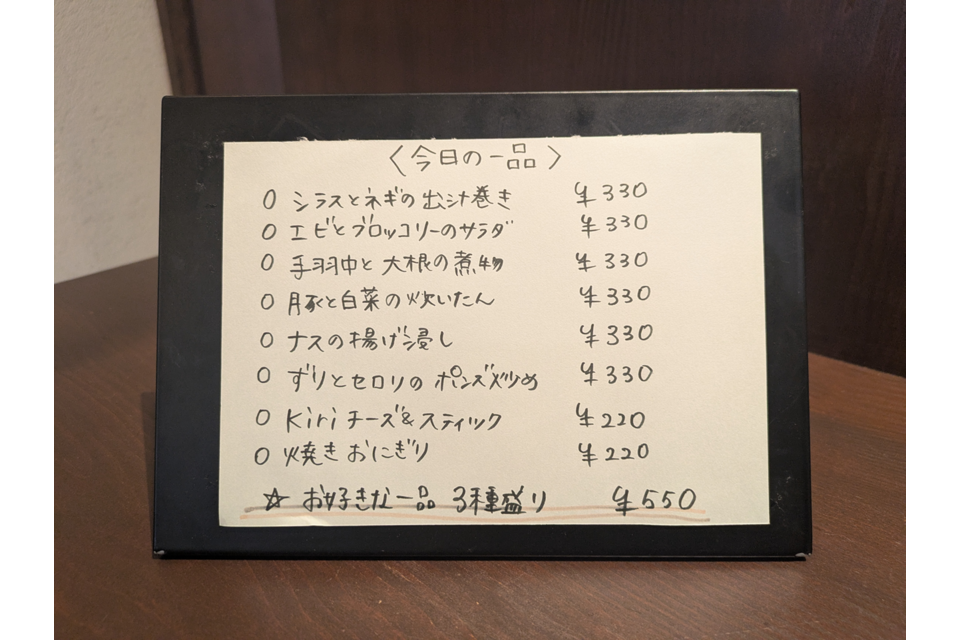 〈今日の一品〉
○ シラスとネギの出汁巻き ¥330
○ エビとブロッコリーのサラダ ¥330
○ 手羽中と大根の煮物 ¥330
○ 豚と白菜の炊いたん ¥330
○ ナスの揚げ浸し ¥330
○ ずりとセロリのポンズ炒め ¥330
○ Kiriチーズ&スティック ¥220
○ 焼きおにぎり ¥220
☆ お好きな一品 3種盛り ¥550